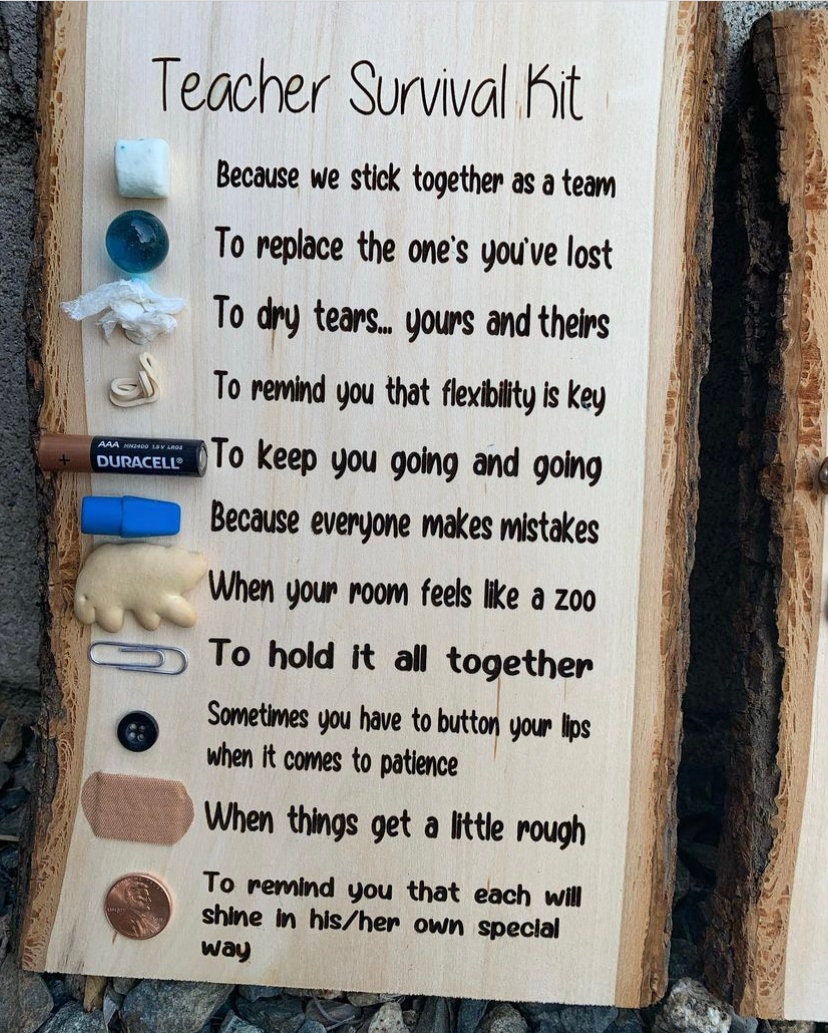 Teacher Survival Kit
Because we stick together as a team
To replace the one's you've lost
To dry tears... yours and theirs
To remind you that flexibility is key
AAA MN2400 1.5V LR03
DURACELL®
To keep you going and going
Because everyone makes mistakes
When your room feels like a zoo
To hold it all together
Sometimes you have to button your lips
when it comes to patience
When things get a little rough
To remind you that each will
shine in his/her own special
way